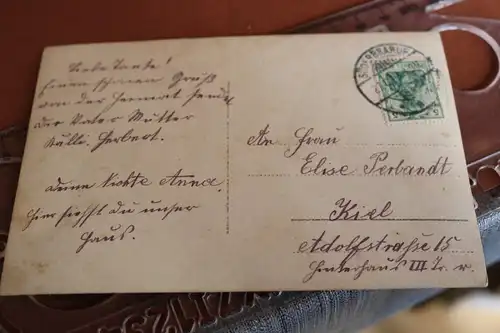 Liebe Tante!
Einen schönen Gruß
von der Heimat sendet
der Vater Mutter
Külli. Herbert.
deine Nichte Anna.
Hier siehst du unser
Haus.
An Frau
Elise Perbandt
Kiel
Adolfstraße 15
Hinterhaus III Tr. r.